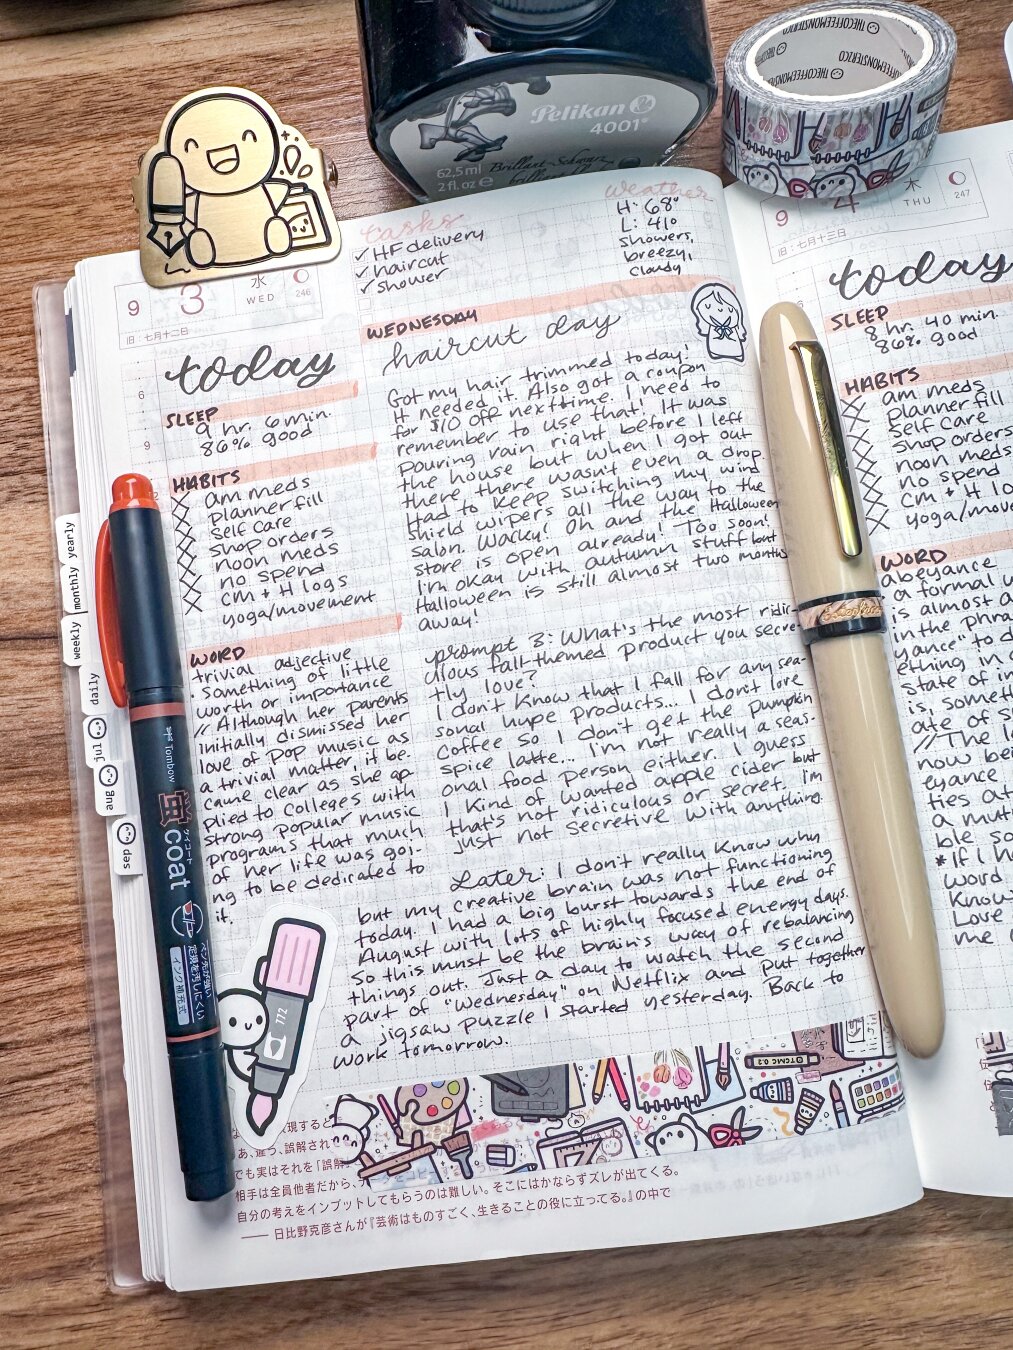 THECOFFEEMONSTERZCO
THECOFFEEMONSTERZCO
THECOFFEEMONSTERZCO
Pelikan
4001®
62,5 ml
2 fl. oz e
Brillant-Schwarz
tasks
✓ HF delivery
✓ haircut
✓ shower
weather
H: 68°
L: 41°
showers,
breezy,
cloudy
9 3 水 WED 246
旧：七月十二日
today
6
9
SLEEP
9 hr. 6 min.
86% good
HABITS
am meds
planner fill
self care
shop orders
noon meds
no spend
CM + H logs
yoga/movement
WORD
trivial adjective
· something of little
worth or importance
// Although her parents
initially dismissed her
love of pop music as
a trivial matter, it be-
came clear as she ap-
plied to colleges with
strong popular music
programs that much
of her life was goi-
ng to be dedicated to
it.
WEDNESDAY
haircut day
Got my hair trimmed today!
It needed it. Also got a coupon
for $10 off next time. I need to
remember to use that! It was
pouring rain right before I left
the house but when I got out
there, there wasn't even a drop.
Had to keep switching my wind
shield wipers all the way to the
salon. Wacky! Oh and the Halloween
store is open already! Too soon!
I'm okay with autumn stuff but
Halloween is still almost two months
away!
prompt 3: What's the most ridic-
ulous fall-themed product you secre-
tly love?
I don't know that I fall for any sea-
sonal hype products... I don't love
coffee so I don't get the pumpkin
spice latte... I'm not really a seas-
onal food person either. I guess
I kind of wanted apple cider but
that's not ridiculous or secret. I'm
just not secretive with anything.
Later: I don't really know why
but my creative brain was not functioning
today. I had a big burst towards the end of
August with lots of highly focused energy days.
So this must be the brain's way of rebalancing
things out. Just a day to watch the second
part of "Wednesday" on Netflix and put together
a jigsaw puzzle I started yesterday. Back to
work tomorrow.
772
TCMC 0.2
あ、違う、誤解され
でも実はそれを「誤解
相手は全員他者だから、
自分の考えをインプットしてもらうのは難しい。そこにはかならずズレが出てくる。
—— 日比野克彦さんが『芸術はものすごく、生きることの役に立ってる。』の中で
monthly yearly
weekly
daily
jul
aug
sep
Tombow
蛍
coat
インク補充式
9 4 木 THU 247
旧：七月十三日
today
SLEEP
8 hr. 40 min.
86% good
HABITS
am meds
planner fill
self care
shop orders
noon meds
no spend
CM + H lo
yoga/move
WORD
abeyance
a formal
is almost a
in the phra
yance" to d
ething in
state of in
is, someth
ate of s
// The l
now bei
eyance
ties at
a mut
ble so
*If I h
word
Know
Love
me